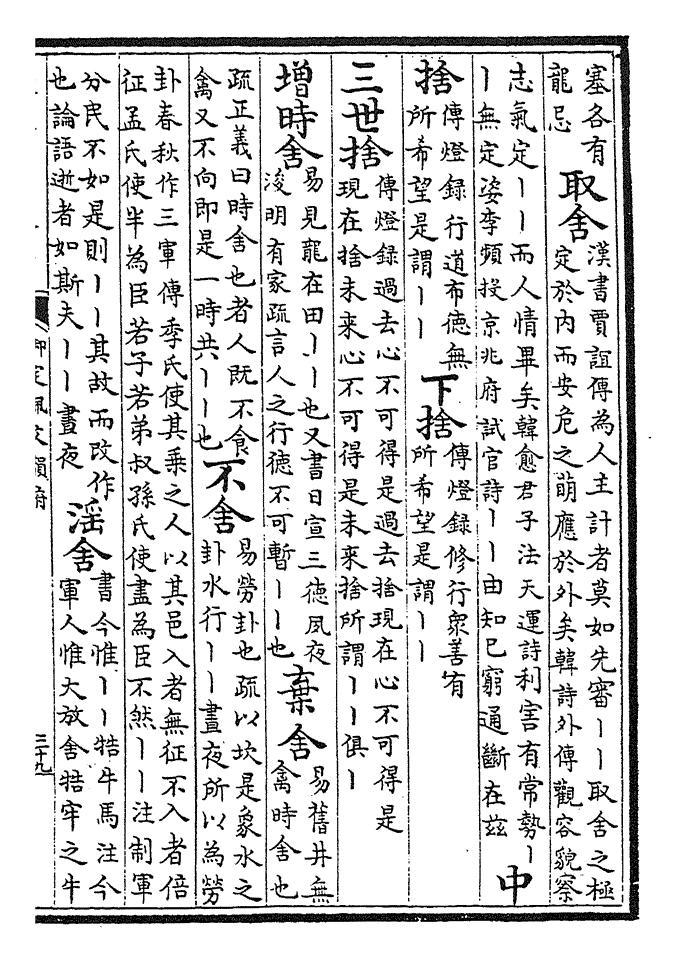 塞各有
龍忌
取舍
漢書賈誼傳為人主計者莫如先審丨丨取舍之極
定於内而安危之萌應於外矣韓詩外傳觀容貌察
志氣定丨丨而人情畢矣韓愈君子法天運詩利害有常勢丨
丨無定姿李頻投京兆府試官詩丨丨由知己窮通斷在兹
中
捨
傳燈録行道布德無
所希望是謂丨丨
下捨
傳燈録修行衆善有
所希望是謂丨丨
三世捨
傳燈録過去心不可得是過去捨現在心不可得是
現在捨未來心不可得是未來捨所謂丨丨俱丨
增時舍
易見龍在田丨丨也又書日宣三德夙夜
浚明有家疏言人之行德不可暫丨丨也
棄舍
易舊井無
禽時舍也
疏正義曰時舍也者人既不食
禽又不向即是一時共丨丨也
不舍
易勞卦也疏以坎是象水之
卦水行丨丨晝夜所以為勞
卦春秋作三軍傳季氏使其乘之人以其邑入者無征不入者倍
征孟氏使半為臣若子若弟叔孫氏使盡為臣不然丨丨注制軍
分民不如是則丨丨其故而改作
也論語逝者如斯夫丨丨晝夜
淫舍
書今惟丨丨牿牛馬注今
軍人惟大放舍牿牢之牛
御定佩文韻府
三十九